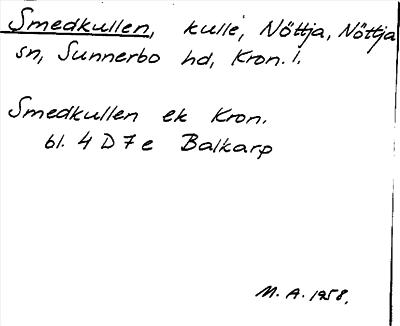 Smedkullen, kulle, Nöttja, Nöttja
sn, Sunnerbo hd, Kron. l.
Smedkullen ek Kron.
bl. 4 D 7 e Balkarp
M. A. 1958.